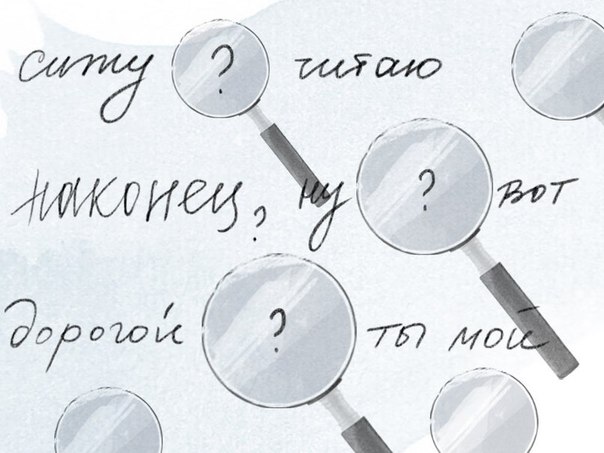 сижу ? читаю
наконец, ? ну ? вот
дорогой ? ты мой